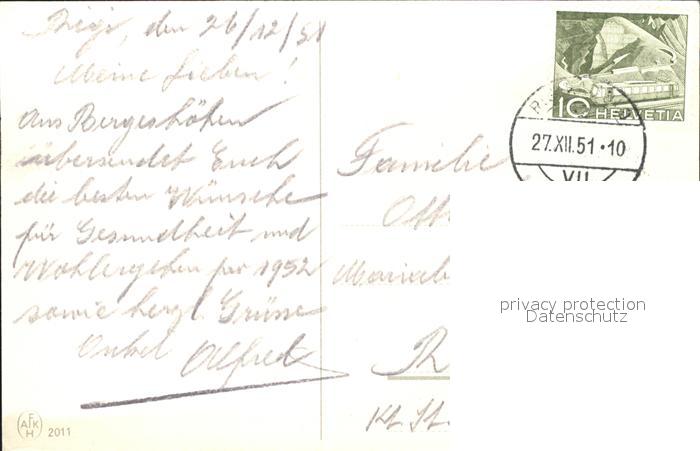 Rigi, den 26/12/51
Meine Lieben!
Aus Bergeshöhen
übersendet Euch
die besten Wünsche
für Gesundheit und
Wohlergehen per 1952
sowie herzl. Grüsse
Onkel Alfred
AFKH 2011
Familie
Kt. St.
10 HELVETIA
27.XII.51.-10
VII
privacy protection
Datenschutz